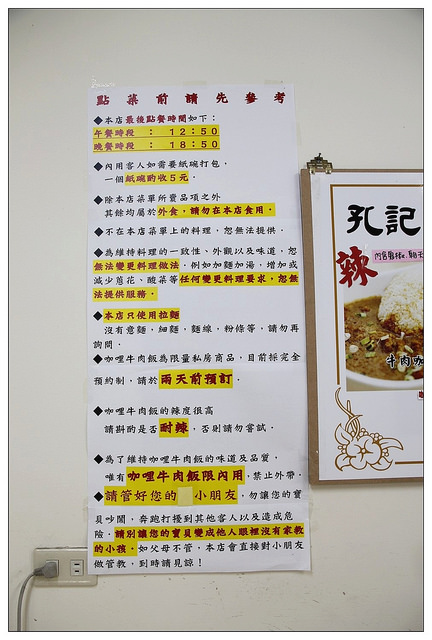 點菜前請先參考
◆本店最後點餐時間如下：
午餐時段 : 12:50
晚餐時段 : 18:50
◆內用客人如需要紙碗打包，
一個紙碗酌收5元。
◆除本店菜單所賣品項之外
其餘均屬於外食，請勿在本店食用。
◆不在本店菜單上的料理，恕無法提供。
◆為維持料理的一致性、外觀以及味道，恕
無法變更料理做法。例如加麵加湯，增加或
減少蔥花、酸菜等任何變更料理要求，恕無
法提供服務。
◆本店只使用拉麵
沒有意麵，細麵，麵線，粉條等，請勿再
詢問。
◆咖哩牛肉飯為限量私房商品，目前採完全
預約制，請於兩天前預訂。
◆咖哩牛肉飯的辣度很高
請斟酌是否耐辣，否則請勿嘗試。
◆為了維持咖哩牛肉飯的味道及品質，
唯有咖哩牛肉飯限內用，禁止外帶。
◆請管好您的 小朋友，勿讓您的寶
貝吵鬧，奔跑打擾到其他客人以及造成危
險。請別讓您的寶貝變成他人眼裡沒有家教
的小孩。如父母不管，本店會直接對小朋友
做管教，到時請見諒！
孔記
辣
牛肉咖